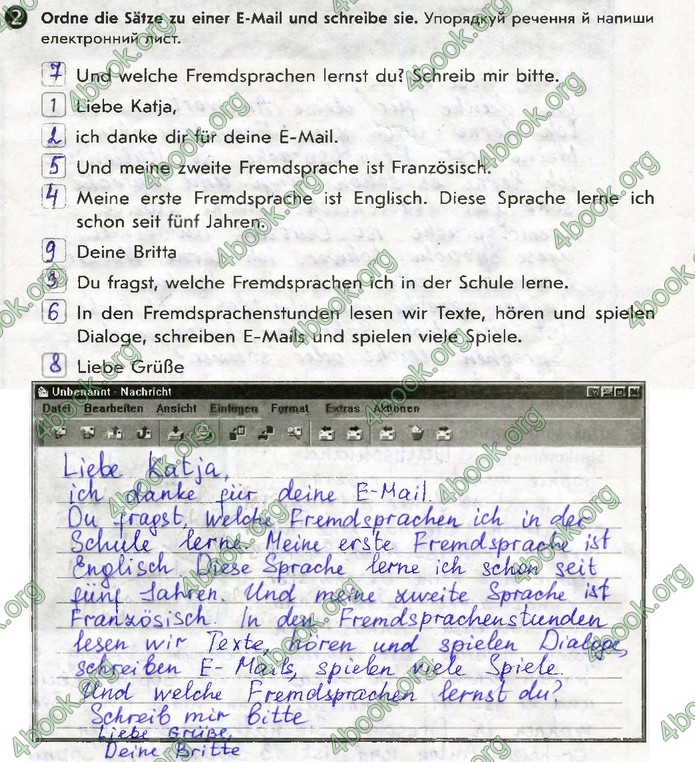 2 Ordne die Sätze zu einer E-Mail und schreibe sie. Упорядкуй речення й напиши
електронний лист.
7 Und welche Fremdsprachen lernst du? Schreib mir bitte.
1 Liebe Katja,
2 ich danke dir für deine E-Mail.
5 Und meine zweite Fremdsprache ist Französisch.
4 Meine erste Fremdsprache ist Englisch. Diese Sprache lerne ich
schon seit fünf Jahren.
9 Deine Britta
3 Du fragst, welche Fremdsprachen ich in der Schule lerne.
6 In den Fremdsprachenstunden lesen wir Texte, hören und spielen
Dialoge, schreiben E-Mails und spielen viele Spiele.
8 Liebe Grüße
Unbenannt - Nachricht
Datei Bearbeiten Ansicht Einfügen Format Extras Aktionen
Liebe Katja,
ich danke für deine E-Mail.
Du fragst, welche Fremdsprachen ich in der
Schule lerne. Meine erste Fremdsprache ist
Englisch. Diese Sprache lerne ich schon seit
fünf Jahren. Und meine zweite Sprache ist
Französisch. In den Fremdsprachenstunden
lesen wir Texte, hören und spielen Dialoge,
schreiben E-Mails, spielen viele Spiele.
Und welche Fremdsprachen lernst du?
Schreib mir bitte
Liebe Grüße,
Deine Britte
4book.org